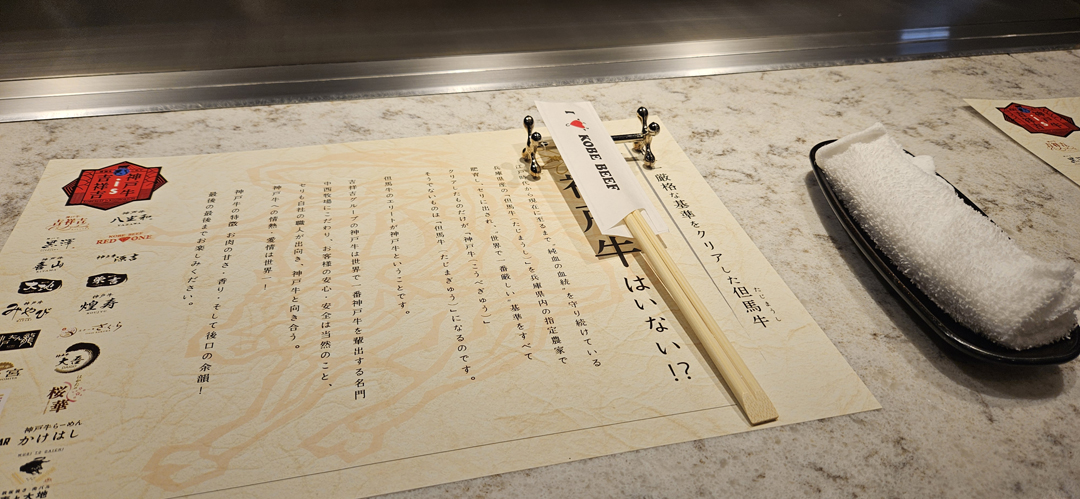 厳格な基準をクリアした但馬牛
たじまうし
神戸牛
はいない!?
江戸時代から現在に至るまで"純血の血統"を守り続けている
兵庫県産の「但馬牛(たじまうし)」を兵庫県内の指定農家で
肥育、セリに出され、世界で一番厳しい基準をすべて
クリアしたものだけが「神戸牛(こうべぎゅう)」
そうでないものは「但馬牛(たじまぎゅう)」になるのです。
但馬牛のエリートが神戸牛ということです。
吉祥吉グループの神戸牛は世界で一番神戸牛を輩出する名門
中西牧場にこだわり、お客様の安心・安全は当然のこと、
セリも自社の職人が出向き、神戸牛と向き合う。
神戸牛への情熱・愛情は世界一!
神戸牛の特徴、お肉の甘さ・香り・そして後口の余韻!
最後の最後までお楽しみください。
KOBE BEEF
神戸牛
吉祥吉
吉祥吉
八坐和
黒澤
RED ONE
喜山
神戸牛 源吉
大地
榮吉
みやび
煌寿
ざくら
大壱
宮
桜華
神戸牛らーめん
かけはし